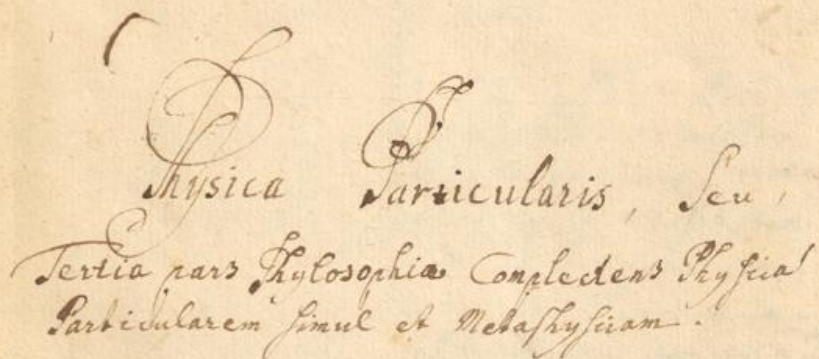 Physica Particularis, Seu,
Tertia pars Phylosophiæ Complectens Physicã
Particularem simul et Metaphysicam.